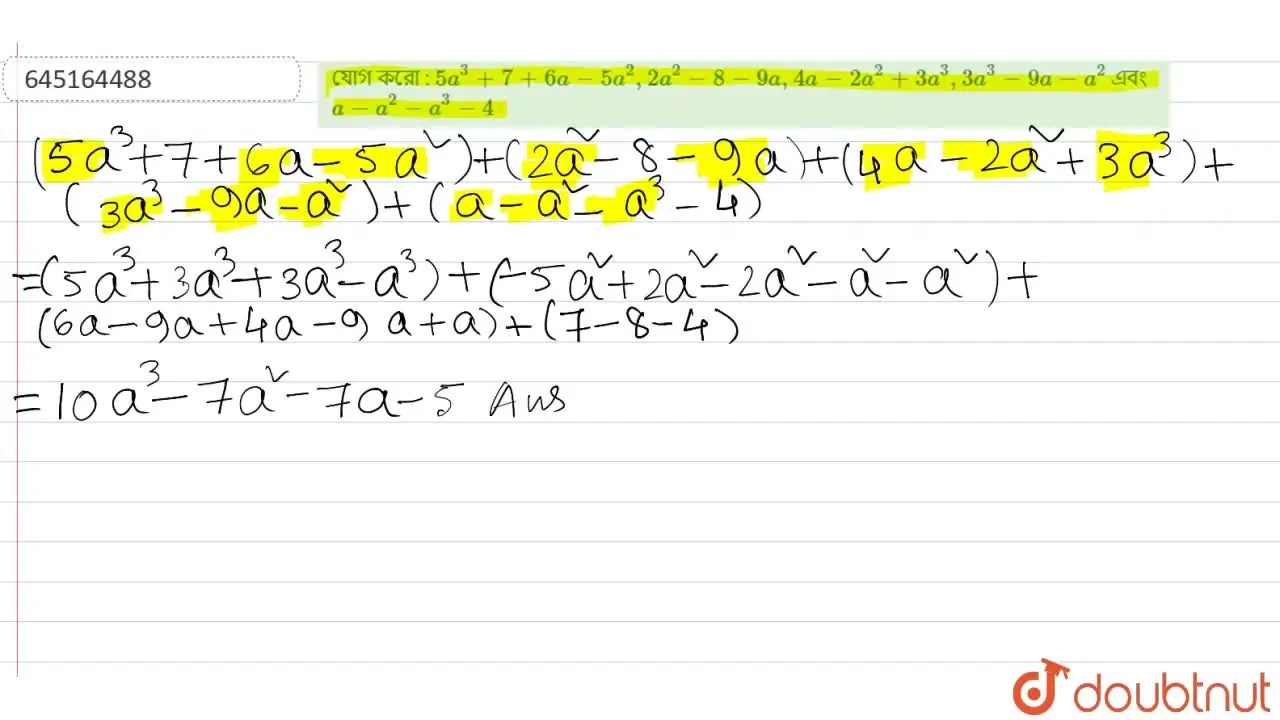 645164488
যোগ করো : 5a³ + 7 + 6a − 5a², 2a² − 8 − 9a, 4a − 2a² + 3a³, 3a³ − 9a − a² এবং
a − a² − a³ − 4
(5a³+7+6a−5a²)+(2a²−8−9a)+(4a−2a²+3a³)+
(3a³−9a−a²)+(a−a²−a³−4)
=(5a³+3a³+3a³−a³)+(−5a²+2a²−2a²−a²−a²)+
(6a−9a+4a−9a+a)+(7−8−4)
=10a³−7a²−7a−5 Ans
doubtnut